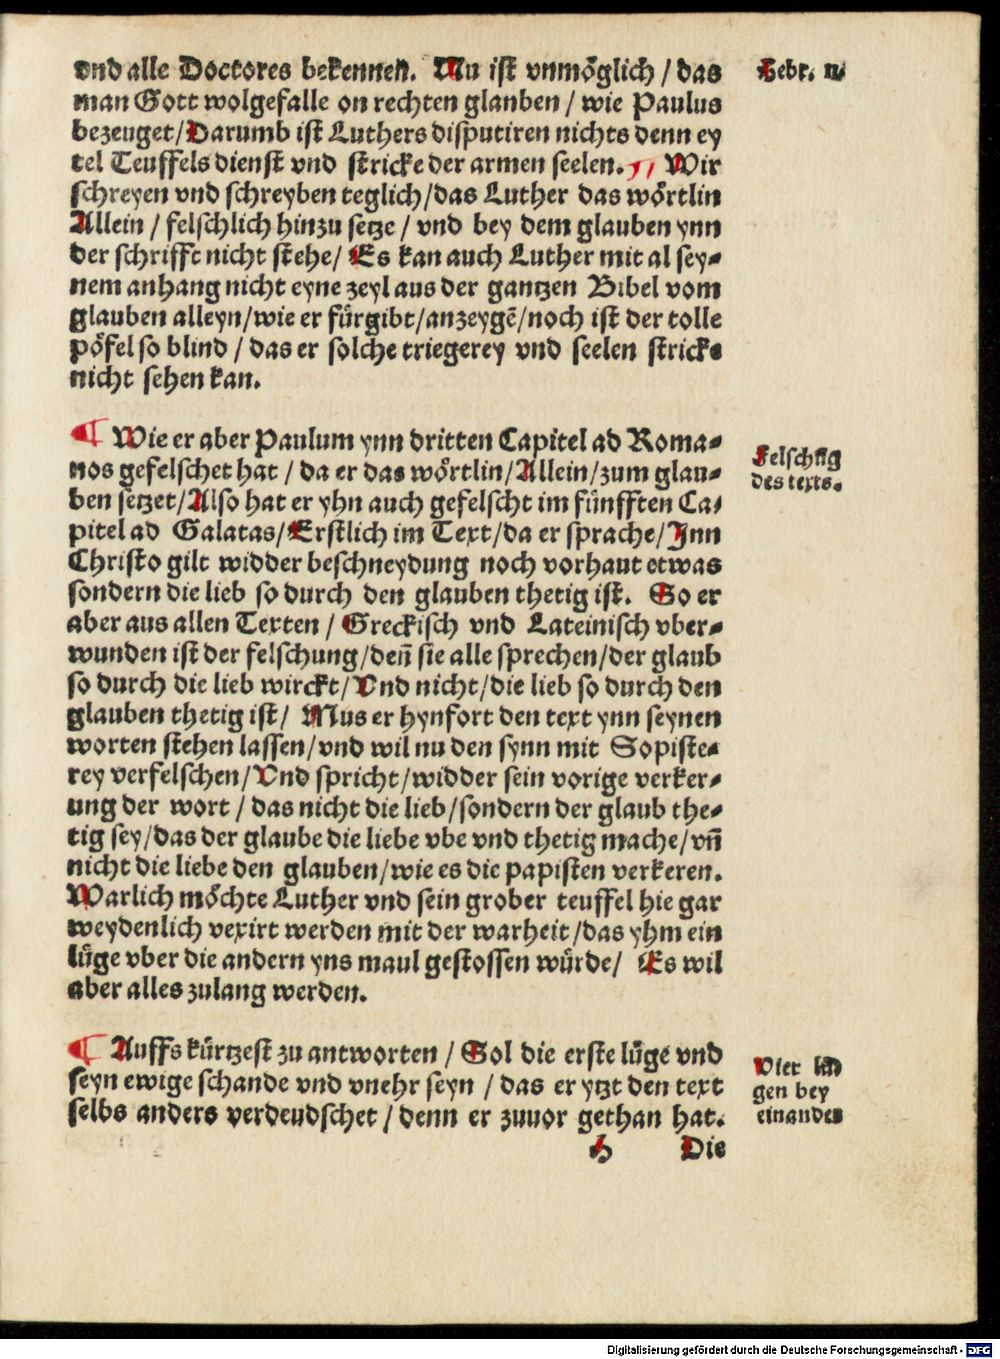 vnd alle Doctores bekennen. Nu ist vnmöglich / das
man Gott wolgefalle on rechten glauben / wie Paulus
bezeuget/Darumb ist Luthers disputiren nichts denn ey
tel Teuffels dienst vnd stricke der armen seelen. Wir
schreyen vnd schreyben teglich/das Luther das wörtlin
Allein / felschlich hinzu setze / vnd bey dem glauben ynn
der schrifft nicht stehe/ Es kan auch Luther mit al sey-
nem anhang nicht eyne zeyl aus der gantzen Bibel vom
glauben alleyn/wie er fürgibt/anzeygē/noch ist der tolle
pöfel so blind / das er solche triegerey vnd seelen stricke
nicht sehen kan.
Hebr. 11.
¶ Wie er aber Paulum ynn dritten Capitel ad Roma-
nos gefelschet hat / da er das wörtlin/Allein/zum glau-
ben setzet/Also hat er yhn auch gefelscht im fünfften Ca-
pitel ad Galatas/Erstlich im Text/da er sprache/Inn
Christo gilt widder beschneydung noch vorhaut etwas
sondern die lieb so durch den glauben thetig ist. So er
aber aus allen Texten / Greckisch vnd Lateinisch vber-
wunden ist der felschung/den̄ sie alle sprechen/der glaub
so durch die lieb wirckt/Vnd nicht/die lieb so durch den
glauben thetig ist/ Mus er hynfort den text ynn seynen
worten stehen lassen/vnd wil nu den synn mit Sopiste-
rey verfelschen/Vnd spricht/widder sein vorige verker-
ung der wort / das nicht die lieb/sondern der glaub the-
tig sey/das der glaube die liebe vbe vnd thetig mache/vn̄
nicht die liebe den glauben/wie es die papisten verkeren.
Warlich möchte Luther vnd sein grober teuffel hie gar
weydenlich vexirt werden mit der warheit/das yhm ein
lüge vber die andern yns maul gestossen würde/ Es wil
aber alles zulang werden.
Felschūg
des texts.
¶ Auffs kürtzest zu antworten / Sol die erste lüge vnd
seyn ewige schande vnd vnehr seyn / das er ytzt den text
selbs anders verdeudschet / denn er zuuor gethan hat.
Vier lü
gen bey
einander
h Die
Digitalisierung gefördert durch die Deutsche Forschungsgemeinschaft - DFG